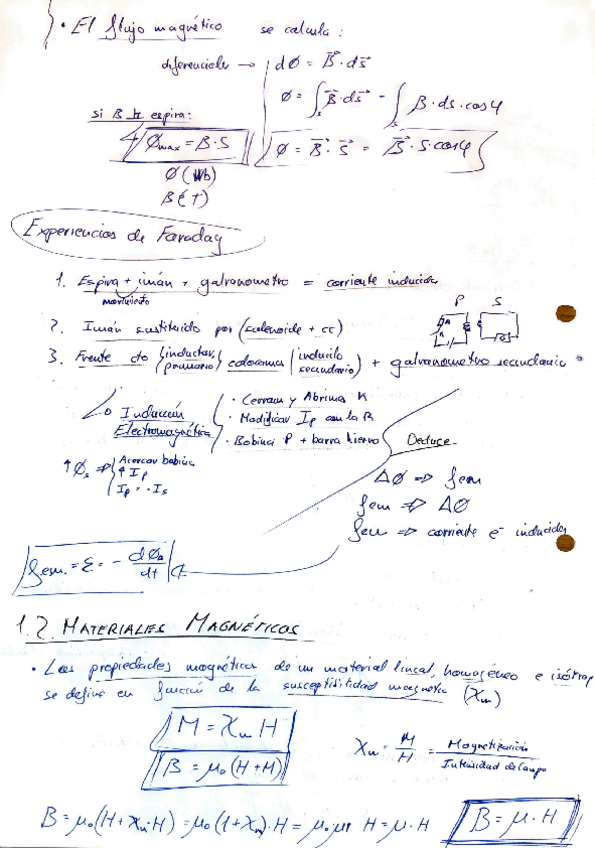 • El flujo magnético se calcula:
diferenciale → dØ = B⃗·ds⃗
Ø = ∫s B⃗·ds⃗ - ∫s B·ds·cosφ
si B ⊥ espira:
Ømax = B·S
Ø = B⃗·S⃗ = B⃗·S·cosφ
Ø (Wb)
B (T)
Experiencias de Faraday
1. Espira + imán + galvanometro = corriente inducida
movimiento
P S
2. Imán sustituido por (solenoide + cc)
3. Frente do (inductor, primario) colocamos (inducido secundario) + galvanometro secundario
Lo Inducción Electromagnética
• Cerramos y Abrimos K
• Modificar Ip con la R
• Bobina P + barra hierro
Deduce.
↑Øs ⇒ Acercar bobina
↑Ip
Ip = -Is
ΔØ ⇒ fem
fem ⇏ ΔØ
fem ⇒ corriente e⁻ inducida
fem. = ε = - dØ/dt
1.2. MATERIALES MAGNÉTICOS
• Las propiedades magnéticas de un material lineal, homogéneo e isótrop
se define en función de la susceptibilidad magnética (Xm)
M = Xm H
B = μo (H+M)
Xm = M/H = Magnetización/Intensidad de Campo
B = μo (H + Xm·H) = μo (1+Xm)·H = μo·μr H = μ·H
B = μ·H